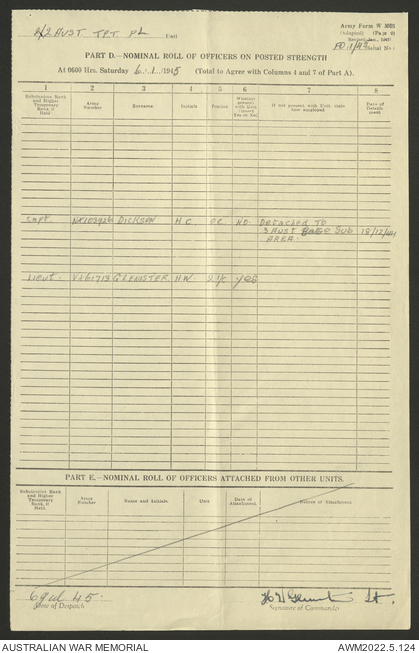 2/2 AUST TPT PL Unit
Army Form W 3008
(Adapted) (Page 9)
Revised Jan., 1943
(Serial No.)
PART D.—NOMINAL ROLL OF OFFICERS ON POSTED STRENGTH
At 0600 Hrs. Saturday 6 . 1 . 1945 (Total to Agree with Columns 4 and 7 of Part A).
1 2 3 4 5 6 7 8
Substantive Rank and Higher Temporary Rank if Held
Army Number
Surname
Initials
Position
Whether present with Unit (insert Yes or No)
If not present with Unit, state how employed
Date of Detachment
Capt. NX103926 DICKSON H C OC NO. Detached TO
3 AUST BASE SUB 18/12/44
AREA.
Lieut. VX61713 GLENISTER HW 2i/c yes
PART E.—NOMINAL ROLL OF OFFICERS ATTACHED FROM OTHER UNITS.
Substantive Rank and Higher Temporary Rank, if Held.
Army Number
Name and Initials.
Unit
Date of Attachment.
Nature of Attachment.
45.
Date of Despatch
Lt.
Signature of Commander
AUSTRALIAN WAR MEMORIAL
AWM2022.5.124